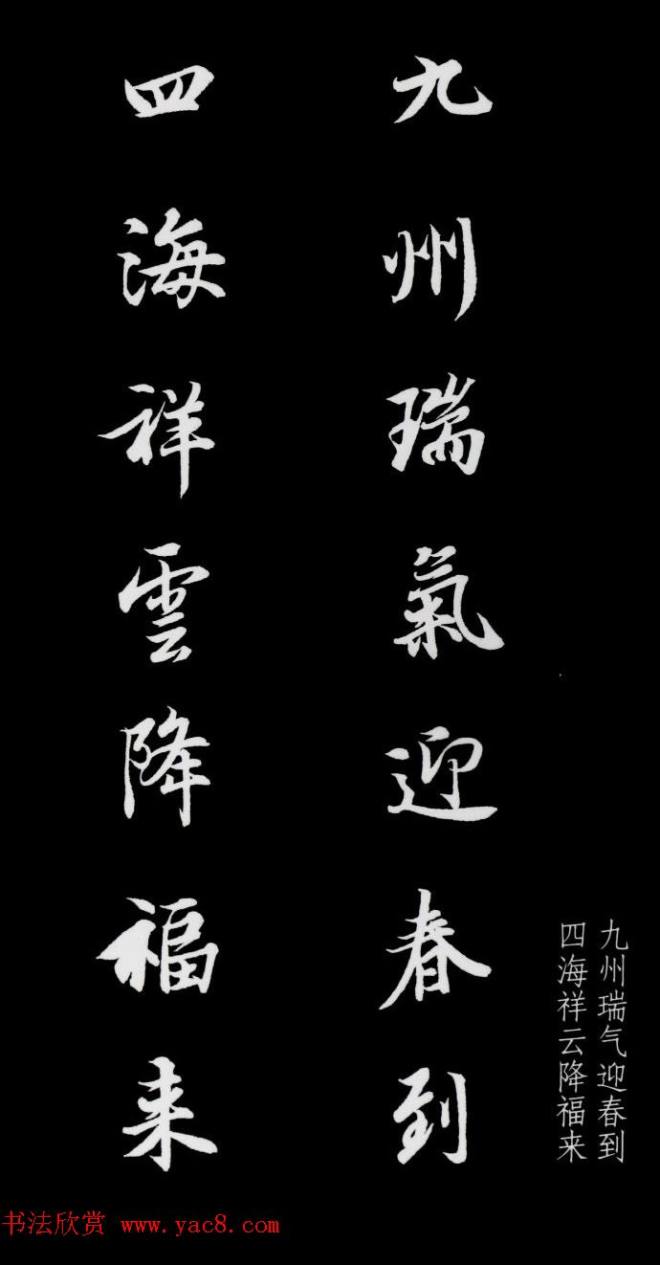 九州瑞氣迎春到
四海祥雲降福来
九州瑞气迎春到
四海祥云降福来
书法欣赏 www.yac8.com